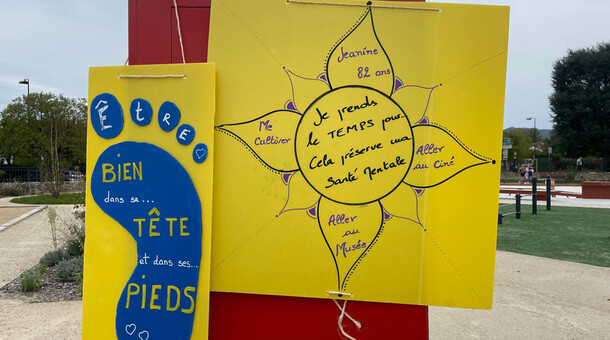 Être
BIEN
dans sa...
TÊTE
et dans ses...
PIEDS
Jeanine
82 ans
Je prends
le TEMPS pour
Cela préserve ma
Santé Mentale
Me
Cultiver
Aller
au Ciné
Aller
au
Musée